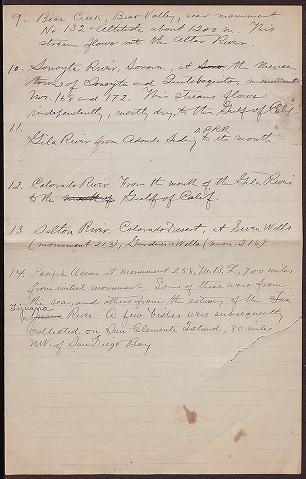 9. Bear Creek, Bear Valley, near monument
No. 132 - Altitude about 1200 m. This
stream flows into the Altar River.
10. Sonoyta River, Sonora, at the Mexican
towns of Sonoyta and Quitobaquito, monuments
Nos. 168 and 172. This stream flows
independently, mostly dry, to the Gulf of Calif.
11.
Gila River from Adonde Siding S.P.R.R. to its mouth
12. Colorado River. From the mouth of the Gila River
to the Gulf of Calif.
13. Salton River. Colorado Desert, at Seven Wells
(monument 213), Gardners Wells (mon. 216)
14. Pacific Ocean at monument 258, M.B.L., 700 miles
from initial monument. Some of these were from
the sea, and others from the estuary of the Tia
Tijuana River. A few fishes were subsequently
collected on San Clemente Island, 80 miles
NW. of San Diego Bay